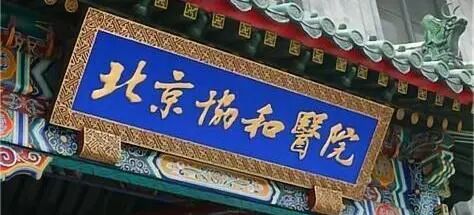 北京協和醫院